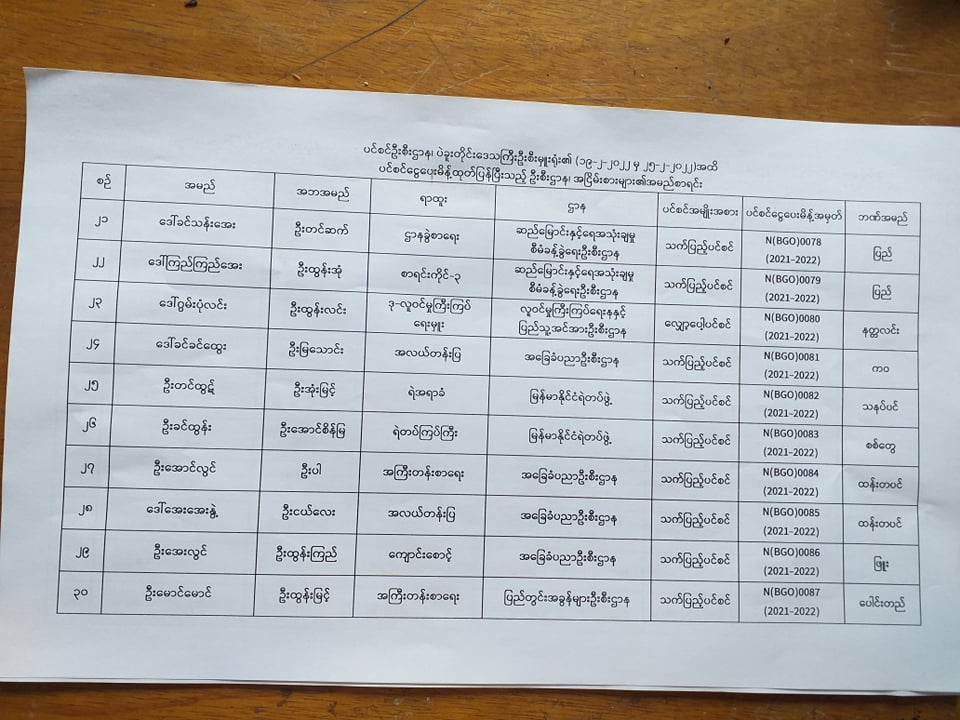 ပင်စင်ဦးစီးဌာန၊ ပဲခူးတိုင်းဒေသကြီးဦးစီးမှူးရုံး၏ (၁၉-၂-၂၀၂၂ မှ ၂၅-၂-၂၀၂၂)အထိ
ပင်စင်ငွေပေးမိန့်ထုတ်ပြန်ပြီးသည့် ဦးစီးဌာန၊ အငြိမ်းစားများ၏အမည်စာရင်း
စဉ် အမည် အဘအမည် ရာထူး ဌာန ပင်စင်အမျိုးအစား ပင်စင်ငွေပေးမိန့်အမှတ် ဘဏ်အမည်
၂၁ ဒေါ်ခင်သန်းအေး ဦးတင်ဆက် ဌာနခွဲစာရေး ဆည်မြောင်းနှင့်ရေအသုံးချမှု သက်ပြည့်ပင်စင် N(BGO)0078 ပြည်
စီမံခန့်ခွဲရေးဦးစီးဌာန (2021-2022)
၂၂ ဒေါ်ကြည်ကြည်အေး ဦးထွန်းအုံ စာရင်းကိုင်-၃ ဆည်မြောင်းနှင့်ရေအသုံးချမှု သက်ပြည့်ပင်စင် N(BGO)0079 ပြည်
စီမံခန့်ခွဲရေးဦးစီးဌာန (2021-2022)
၂၃ ဒေါ်ဂွမ်းပုံလင်း ဦးထွန်းလင်း ဒု-လူဝင်မှုကြီးကြပ် လူဝင်မှုကြီးကြပ်ရေးနှင့် လျှော့ပေါ့ပင်စင် N(BGO)0080 နတ္တလင်း
ရေးမှူး ပြည်သူ့အင်အားဦးစီးဌာန (2021-2022)
၂၄ ဒေါ်ခင်ခင်ထွေး ဦးမြသောင်း အလယ်တန်းပြ အခြေခံပညာဦးစီးဌာန သက်ပြည့်ပင်စင် N(BGO)0081 ကဝ
(2021-2022)
၂၅ ဦးတင်ထွဋ် ဦးအုံးမြင့် ရဲအရာခံ မြန်မာနိုင်ငံရဲတပ်ဖွဲ့ သက်ပြည့်ပင်စင် N(BGO)0082 သနပ်ပင်
(2021-2022)
၂၆ ဦးခင်ထွန်း ဦးအောင်စိန်မြ ရဲတပ်ကြပ်ကြီး မြန်မာနိုင်ငံရဲတပ်ဖွဲ့ သက်ပြည့်ပင်စင် N(BGO)0083 စစ်တွေ
(2021-2022)
၂၇ ဦးအောင်လွင် ဦးပါ အကြီးတန်းစာရေး အခြေခံပညာဦးစီးဌာန သက်ပြည့်ပင်စင် N(BGO)0084 ထန်းတပင်
(2021-2022)
၂၈ ဒေါ်အေးအေးနွဲ့ ဦးငယ်လေး အလယ်တန်းပြ အခြေခံပညာဦးစီးဌာန သက်ပြည့်ပင်စင် N(BGO)0085 ထန်းတပင်
(2021-2022)
၂၉ ဦးအေးလွင် ဦးထွန်းကြည် ကျောင်းစောင့် အခြေခံပညာဦးစီးဌာန သက်ပြည့်ပင်စင် N(BGO)0086 ဖြူး
(2021-2022)
၃၀ ဦးမောင်မောင် ဦးထွန်းမြင့် အကြီးတန်းစာရေး ပြည်တွင်းအခွန်များဦးစီးဌာန သက်ပြည့်ပင်စင် N(BGO)0087 ပေါင်းတည်
(2021-2022)